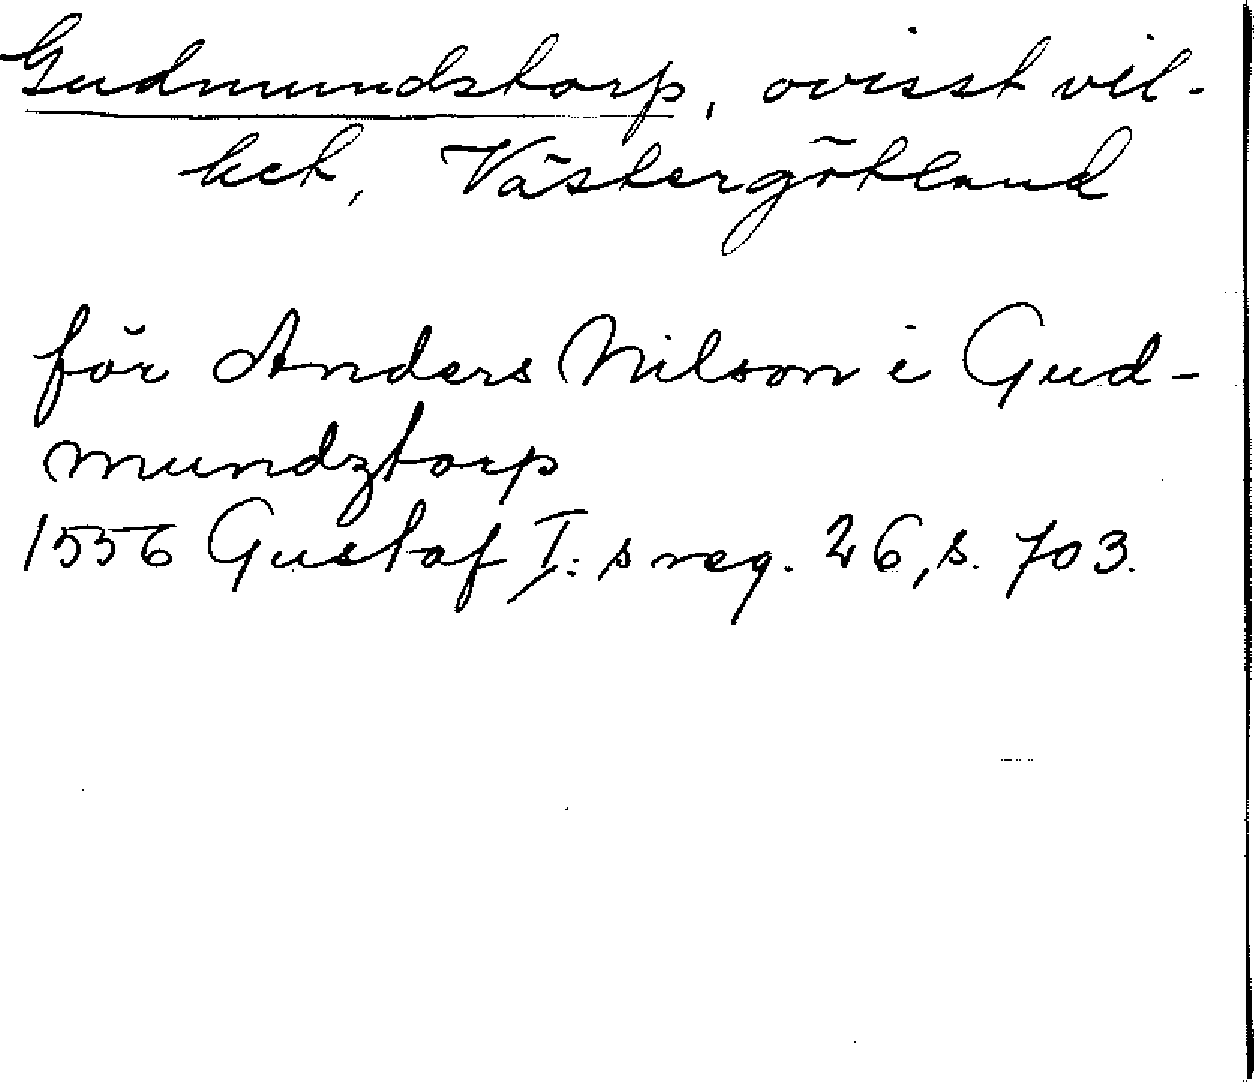 Gudmundstorp, ovisst vil-
ket, Västergötland
för Anders Nilson i Gud-
mundztorp
1556 Gustaf I:s reg. 26, s. 703.